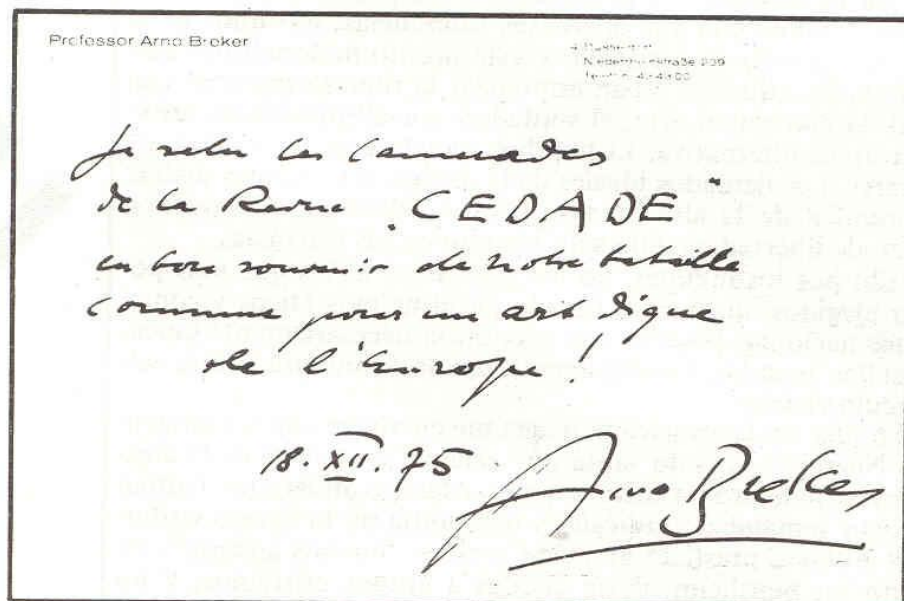 Professor Arno Breker
Niederrheinstraße
Je salue les camarades
de la Revue CEDADE
en bon souvenir de notre bataille
commune pour un art digne
de l'Europe!
18.XII.75 Arno Breker